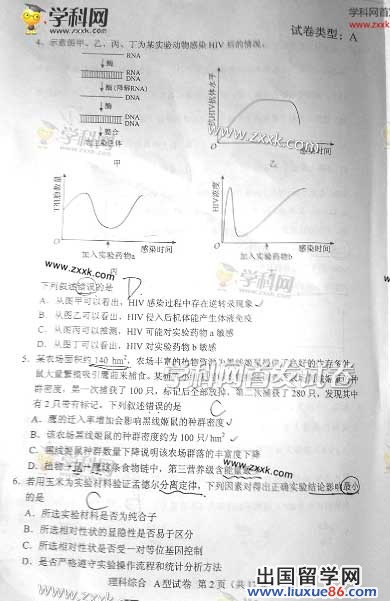 学科网
www.zxxk.com
学科网首发
www.zxxk.com
试卷类型：A
4、示意图甲、乙、丙、丁为某实验动物感染 HIV 后的情况。
RNA
酶
RNA
DNA
酶(降解RNA)
DNA
酶
DNA
DNA
整合
甲
抗HIV抗体水平
O
感染时间
乙
www.zxxk.com
T细胞数量
O
加入实验药物a
感染时间
丙
HIV浓度
O
加入实验药物b
感染时间
学科网
www.zxxk.com
下列叙述错误的是
D
A. 从图甲可以看出，HIV 感染过程中存在逆转录现象
B. 从图乙可以看出，HIV 侵入后机体能产生体液免疫
C. 从图丙可以推测，HIV 可能对实验药物 a 敏感
D. 从图丁可以看出，HIV 对实验药物 b 敏感
5、某农场面积约 140 hm²，农场丰富的植物资源为黑线姬鼠
学科网首发试卷
鼠大量繁殖吸引鹰前来捕食。
群密度，第一次捕获了 100 只，标记后全部放掉，第二次捕获了 280 只，发现其中
有 2 只带有标记，下列叙述错误的是
C
A. 鹰的迁入率增加会影响黑线姬鼠的种群密度
B. 该农场黑线姬鼠的种群密度约为 100 只/hm²
C. 黑线姬鼠种群数量下降说明该农场群落的丰富度下降
D. 植物→鼠→鹰这条食物链中，第三营养级含能量
www.zxxk.com
6、若用玉米为实验材料验证孟德尔分离定律，下列因素对得出正确实验结论影响最小
的是
C
A. 所选实验材料是否为纯合子
B. 所选相对性状的显隐性是否易于区分
C. 所选相对性状是否受一对等位基因控制
D. 是否严格遵守实验操作流程和统计分析方法
理科综合 A型试卷 第 2 页（共
出国留学网
www.liuxue86.com